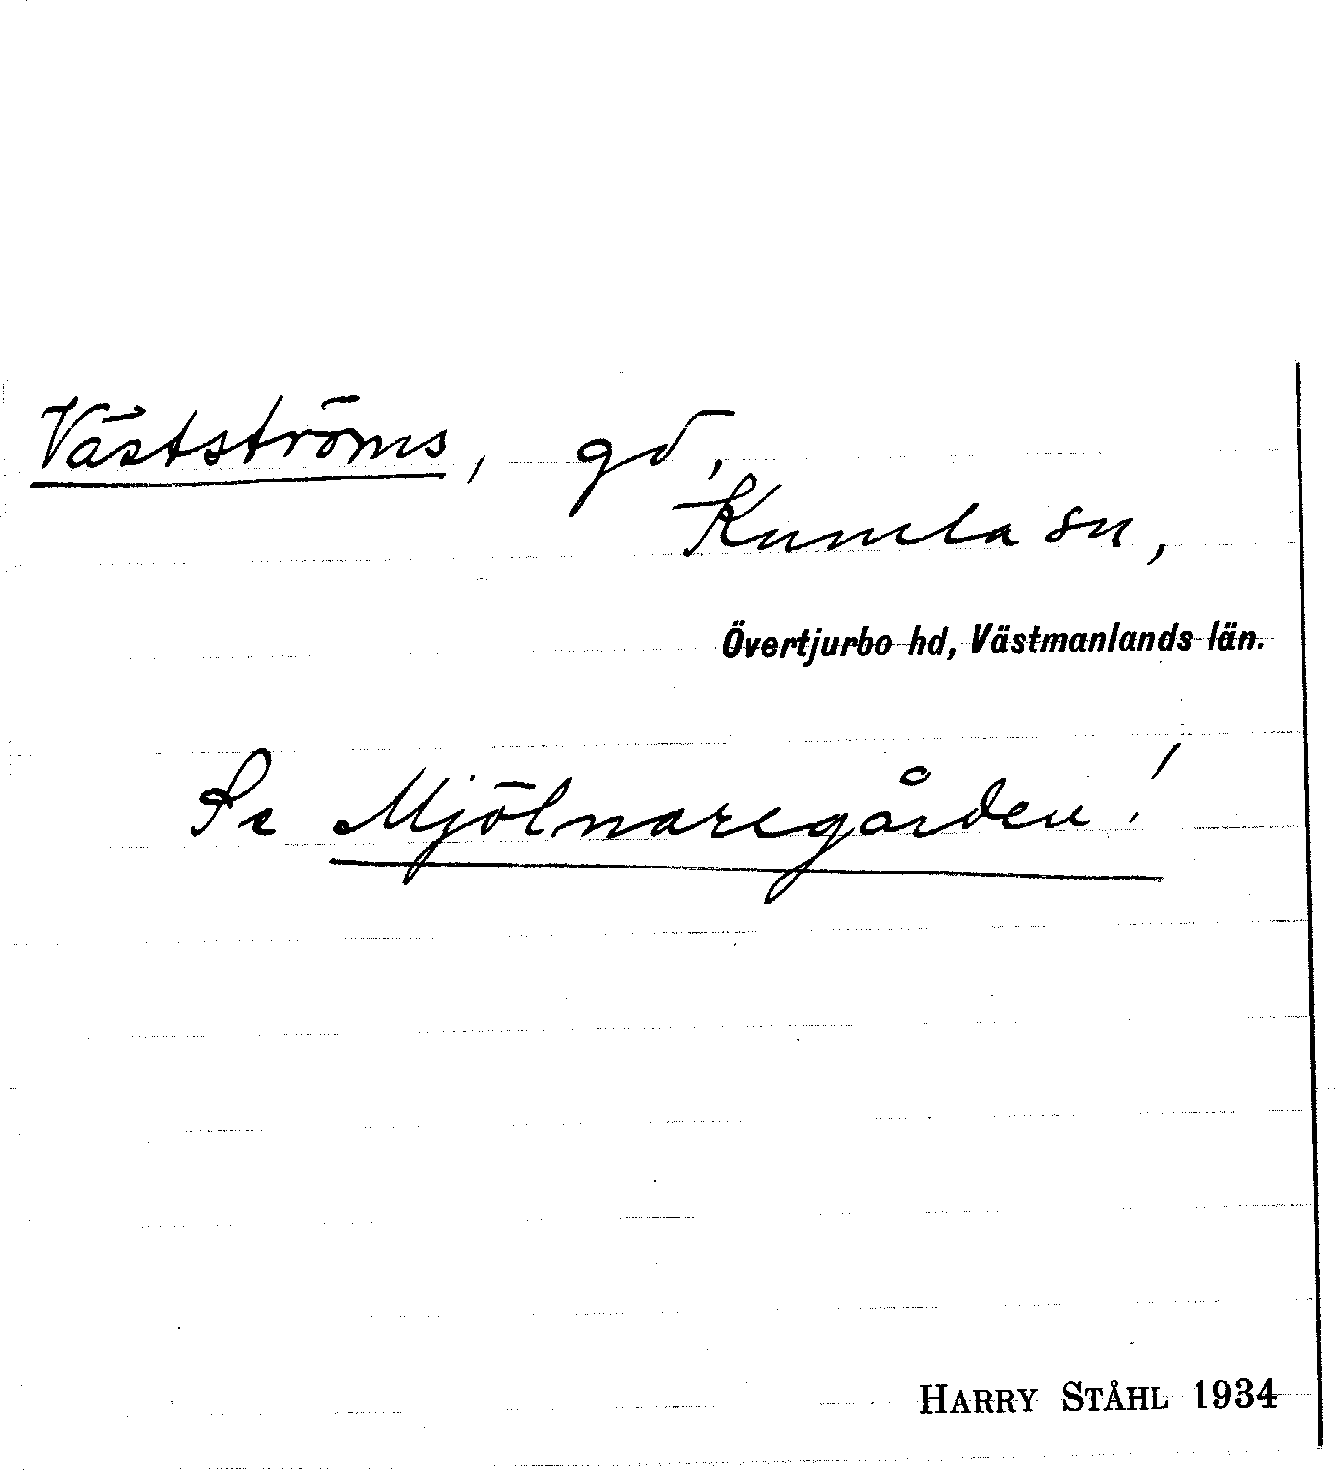 Västströms, gd,
Kumla sn,
Övertjurbo hd, Västmanlands län.
Se Mjölnaregården!
HARRY STÅHL 1934